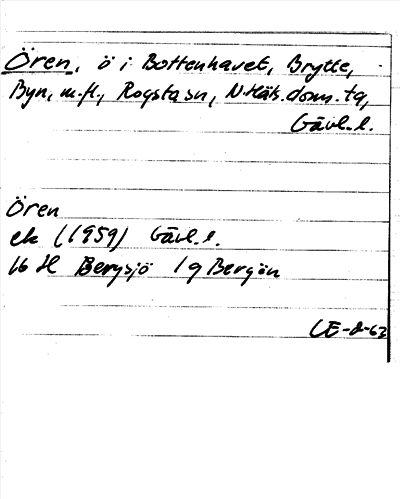 Ören, ö i Bottenhavet, Brytte,
Byn, m.fl., Rogsta sn, N.Häls. doms. tg,
Gävl. l.
Ören
ek (1959) Gävl. l.
16 H Bergsjö 1 g Bergön
CE-2-63